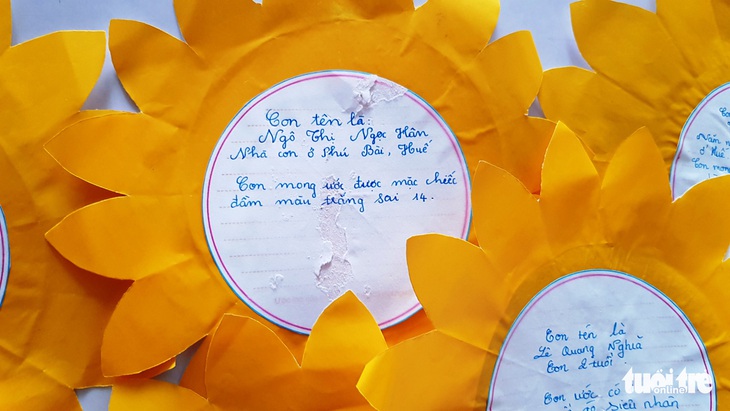 Con tên là:
Ngô Thị Ngọc Hân
Nhà con ở Phú Bài, Huế
Con mong ước được mặc chiếc
đầm màu trắng sai 14.
Con tên là
Lê Quang Nghĩa
Con 2 tuổi.
Con ước có
siêu nhân
ở Huế
Con mong
tuổi trẻ
online